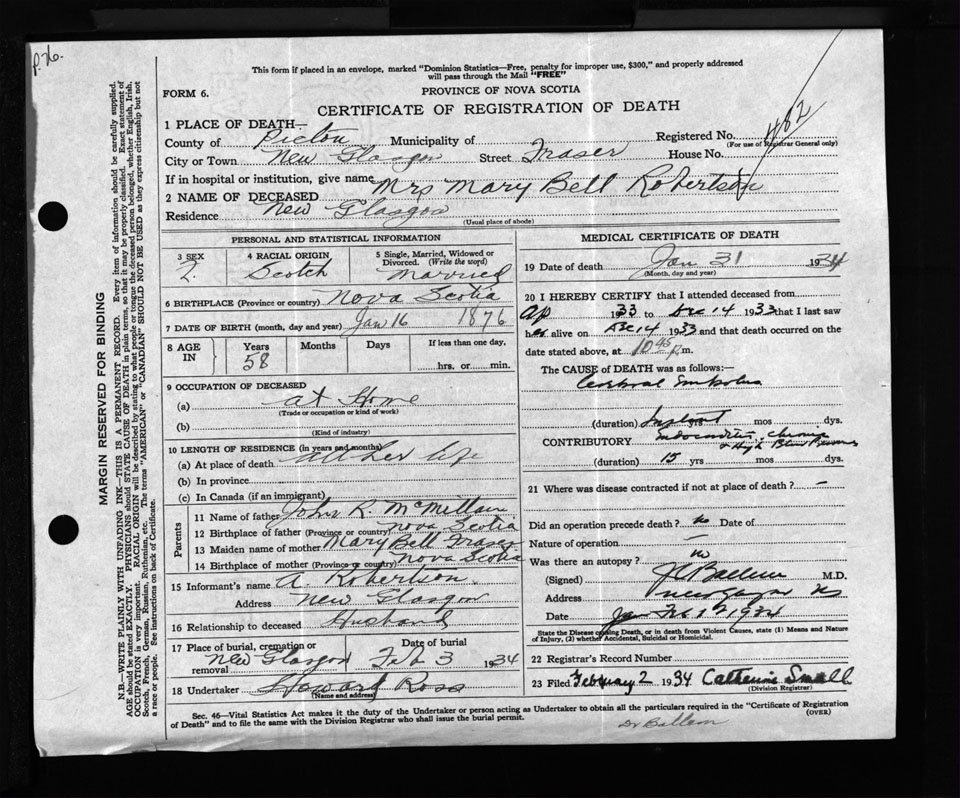 P. 76.
This form if placed in an envelope, marked "Dominion Statistics—Free, penalty for improper use, $300," and properly addressed
will pass through the Mail "FREE"
FORM 6.
PROVINCE OF NOVA SCOTIA
CERTIFICATE OF REGISTRATION OF DEATH
1 PLACE OF DEATH—
County of Pictou Municipality of Registered No. 482
(For use of Registrar General only)
City or Town New Glasgow Street Fraser House No.
If in hospital or institution, give name
2 NAME OF DECEASED Mrs Mary Bell Robertson
Residence New Glasgow
(Usual place of abode)
PERSONAL AND STATISTICAL INFORMATION
3 SEX 4 RACIAL ORIGIN 5 Single, Married, Widowed or
Divorced. (Write the word)
Scotch Married
6 BIRTHPLACE (Province or country) Nova Scotia
7 DATE OF BIRTH (month, day and year) Jan 16 1876
8 AGE IN Years Months Days If less than one day,
58 hrs. or min.
9 OCCUPATION OF DECEASED
(a) at Home
(Trade or occupation or kind of work)
(b)
(Kind of industry)
10 LENGTH OF RESIDENCE (in years and months)
(a) At place of death all her life
(b) In province
(c) In Canada (if an immigrant)
Parents
11 Name of father John R. McMillan
12 Birthplace of father (Province or country) Nova Scotia
13 Maiden name of mother Mary Bell Fraser
14 Birthplace of mother (Province or country) Nova Scotia
15 Informant's name A. Robertson
Address New Glasgow
16 Relationship to deceased Husband
17 Place of burial, cremation or
removal
Date of burial
New Glasgow Feb 3 1934
18 Undertaker Howard Ross
(Name and address)
MEDICAL CERTIFICATE OF DEATH
19 Date of death Jan 31 1934
(Month, day and year)
20 I HEREBY CERTIFY that I attended deceased from
Ap 1933 to Dec 14 1933 that I last saw
her alive on Dec 14 1933 and that death occurred on the
date stated above, at 10 45 p. m.
The CAUSE of DEATH was as follows:—
Cerebral Embolus
(duration) yrs mos dys.
CONTRIBUTORY Endocarditis, chronic
& High Blood Pressure
(duration) 15 yrs mos dys.
21 Where was disease contracted if not at place of death? —
Did an operation precede death? no Date of
Nature of operation —
Was there an autopsy? no
(Signed) M.D.
Address New Glasgow NS
Date Feb 1934
State the Disease causing Death, or in death from Violent Causes, state (1) Means and Nature
of Injury, (2) whether Accidental, Suicidal or Homicidal.
22 Registrar's Record Number
23 Filed February 2 1934 Catherine Small
(Division Registrar)
Sec. 46—Vital Statistics Act makes it the duty of the Undertaker or person acting as Undertaker to obtain all the particulars required in the "Certificate of Registration
of Death" and to file the same with the Division Registrar who shall issue the burial permit.
(OVER)
Dr Ballem
MARGIN RESERVED FOR BINDING
N.B.—WRITE PLAINLY WITH UNFADING INK—THIS IS A PERMANENT RECORD. Every item of information should be carefully supplied.
AGE should be stated EXACTLY. PHYSICIANS should STATE CAUSE OF DEATH in plain terms, so that it may be properly classified. Exact statement of
OCCUPATION is very important. RACIAL ORIGIN will be described by stating to what people or tongue the deceased person belonged, whether English, Irish,
Scotch, French, German, Russian, Ruthenian, etc. The terms "AMERICAN" or "CANADIAN" SHOULD NOT BE USED as they express citizenship but not
a race or people. See instructions on back of Certificate.